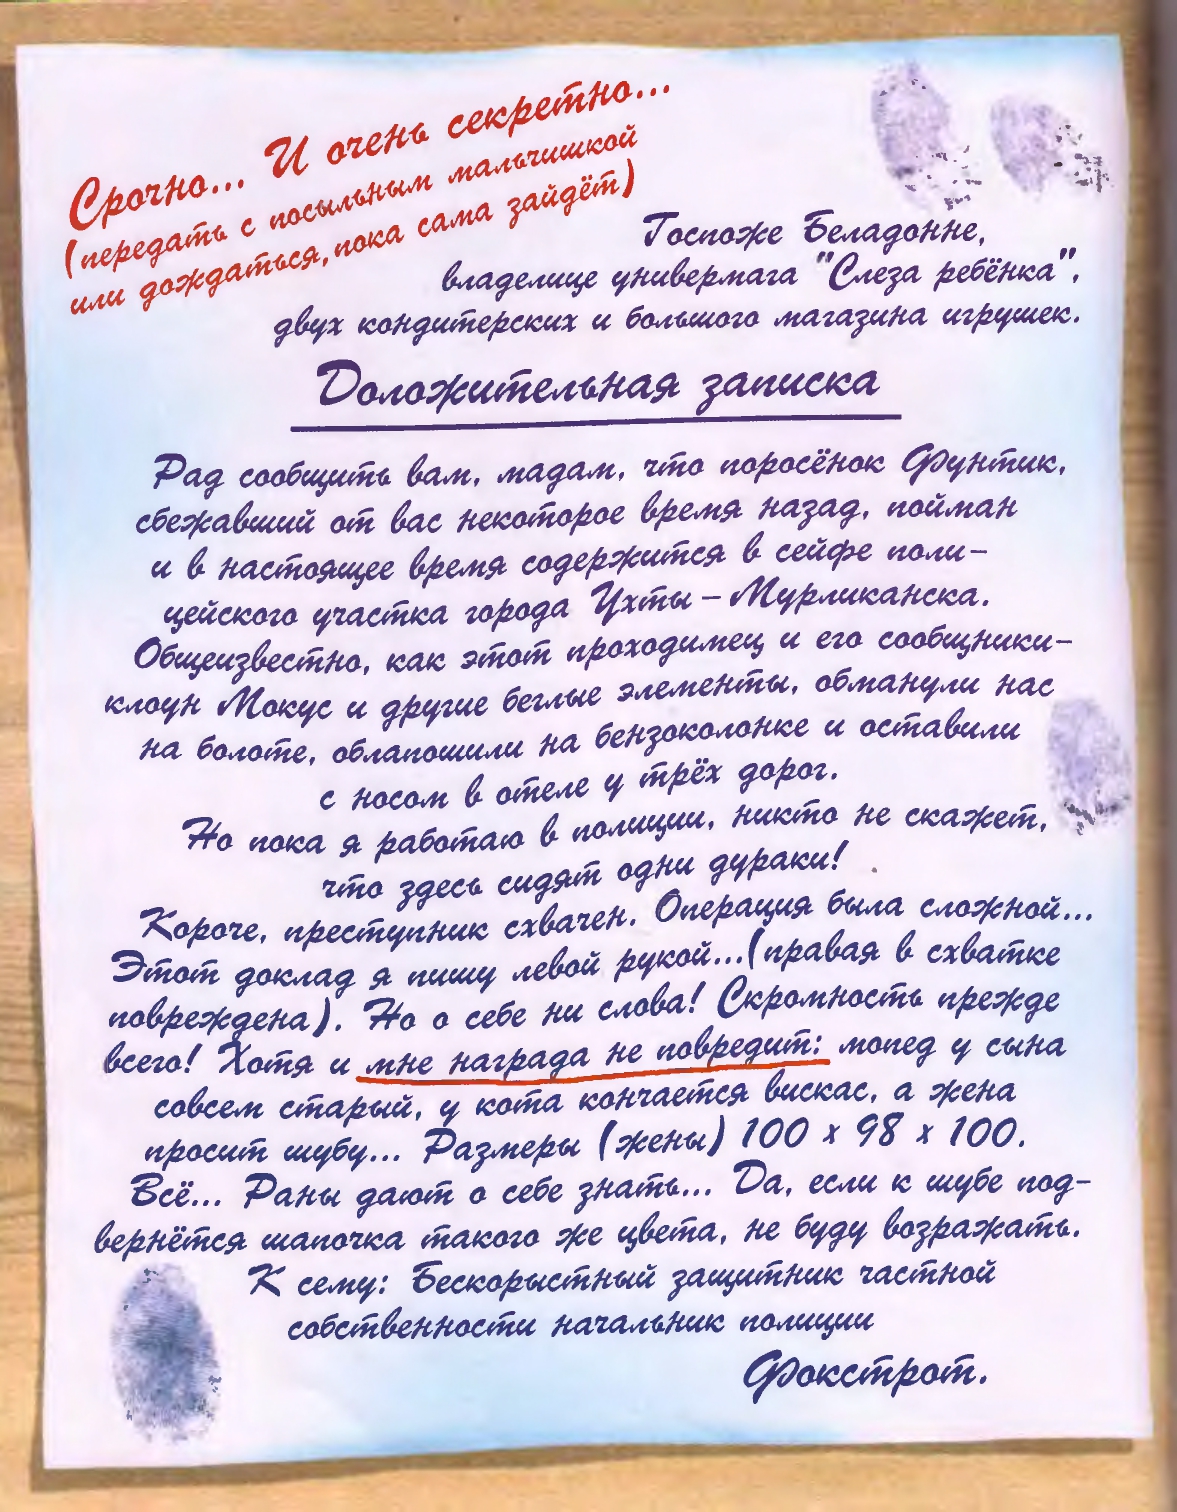 Срочно... И очень секретно...
(передать с посыльным мальчишкой
или дождаться, пока сама зайдёт)
Госпоже Беладонне,
владелице универмага "Слеза ребёнка",
двух кондитерских и большого магазина игрушек.
Доложительная записка
Рад сообщить вам, мадам, что поросёнок Фунтик,
сбежавший от вас некоторое время назад, пойман
и в настоящее время содержится в сейфе поли-
цейского участка города Ухты-Мурликанска.
Общеизвестно, как этот проходимец и его сообщники-
клоун Мокус и другие беглые элементы, обманули нас
на болоте, облапошили на бензоколонке и оставили
с носом в отеле у трёх дорог.
Но пока я работаю в полиции, никто не скажет,
что здесь сидят одни дураки!
Короче, преступник схвачен. Операция была сложной...
Этот доклад я пишу левой рукой...(правая в схватке
повреждена). Но о себе ни слова! Скромность прежде
всего! Хотя и мне награда не повредит: мопед у сына
совсем старый, у кота кончается вискас, а жена
просит шубу... Размеры (жены) 100 x 98 x 100.
Всё... Раны дают о себе знать... Да, если к шубе под-
вернётся шапочка такого же цвета, не буду возражать.
К сему: Бескорыстный защитник частной
собственности начальник полиции
Фокстрот.